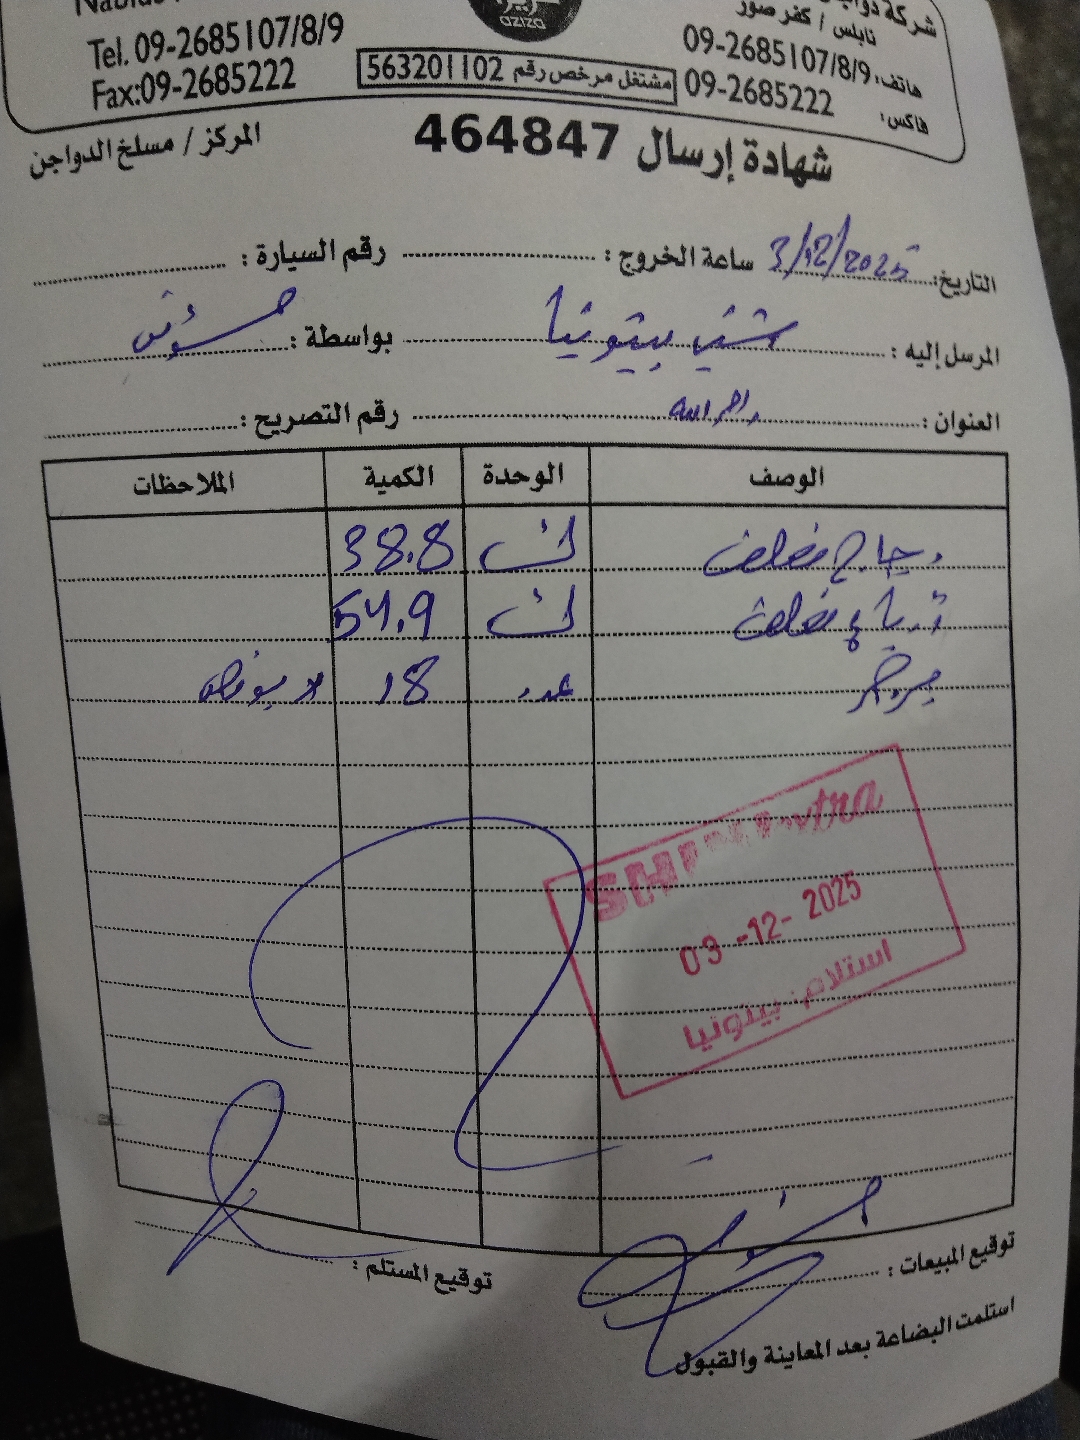 شركة
نابلس / كفر صور
هاتف: 09-2685107/8/9
فاكس: 09-2685222
aziza
مشتغل مرخص رقم 563201102
Tel. 09-2685107/8/9
Fax:09-2685222
شهادة إرسال 464847
المركز / مسلخ الدواجن
التاريخ: 3/12/2025 ساعة الخروج : رقم السيارة :
المرسل إليه : شني بيتونيا بواسطة :
العنوان : رام الله رقم التصريح :
الوصف الوحدة الكمية الملاحظات
دجاج مغلف ك 38.8
ك 54.9
عدد 18
03 -12- 2025
استلام: بيتونيا
توقيع المبيعات : توقيع المستلم :
استلمت البضاعة بعد المعاينة والقبول